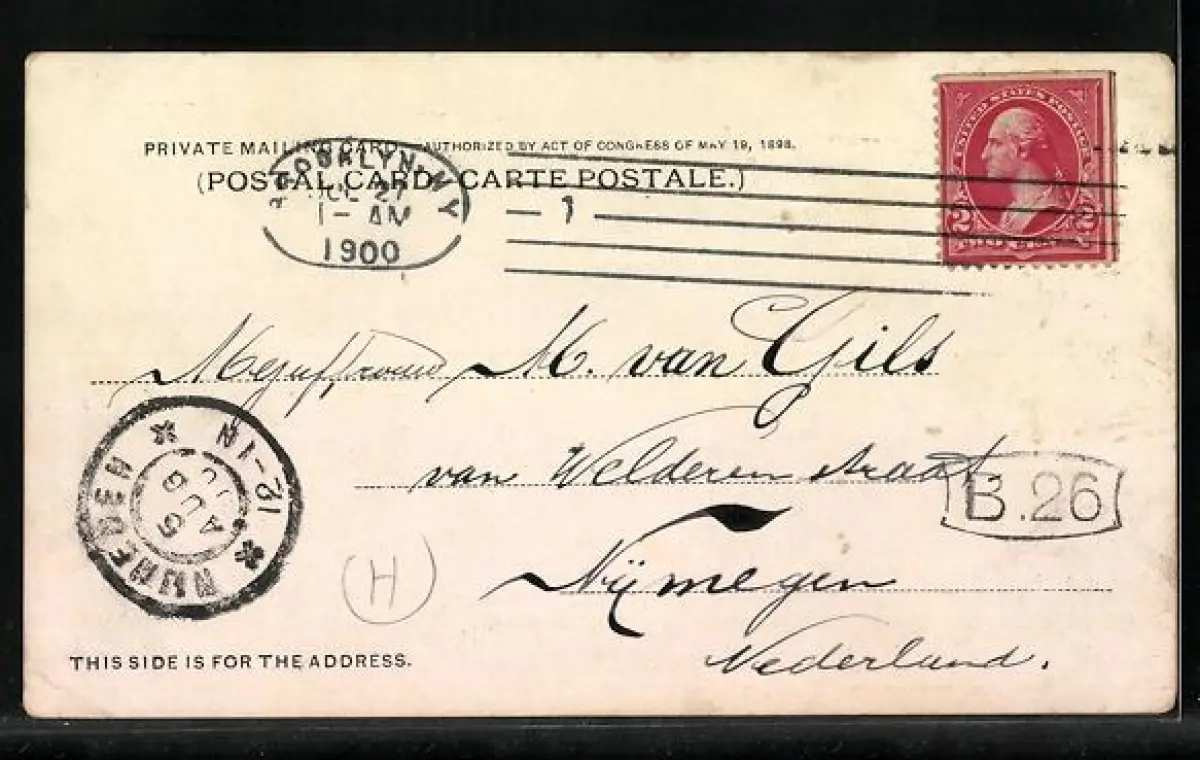 PRIVATE MAILING CARD. AUTHORIZED BY ACT OF CONGRESS OF MAY 19, 1898.
(POSTAL CARD. CARTE POSTALE.)
BROOKLYN, N.Y.
1- AM
1900
1
UNITED STATES POSTAGE
2 2
Mejuffrouw M. van Gils
van Welderen straat
B.26
Nijmegen
Nederland.
12-1N
5
AUG
NIJMEGEN
H
THIS SIDE IS FOR THE ADDRESS.